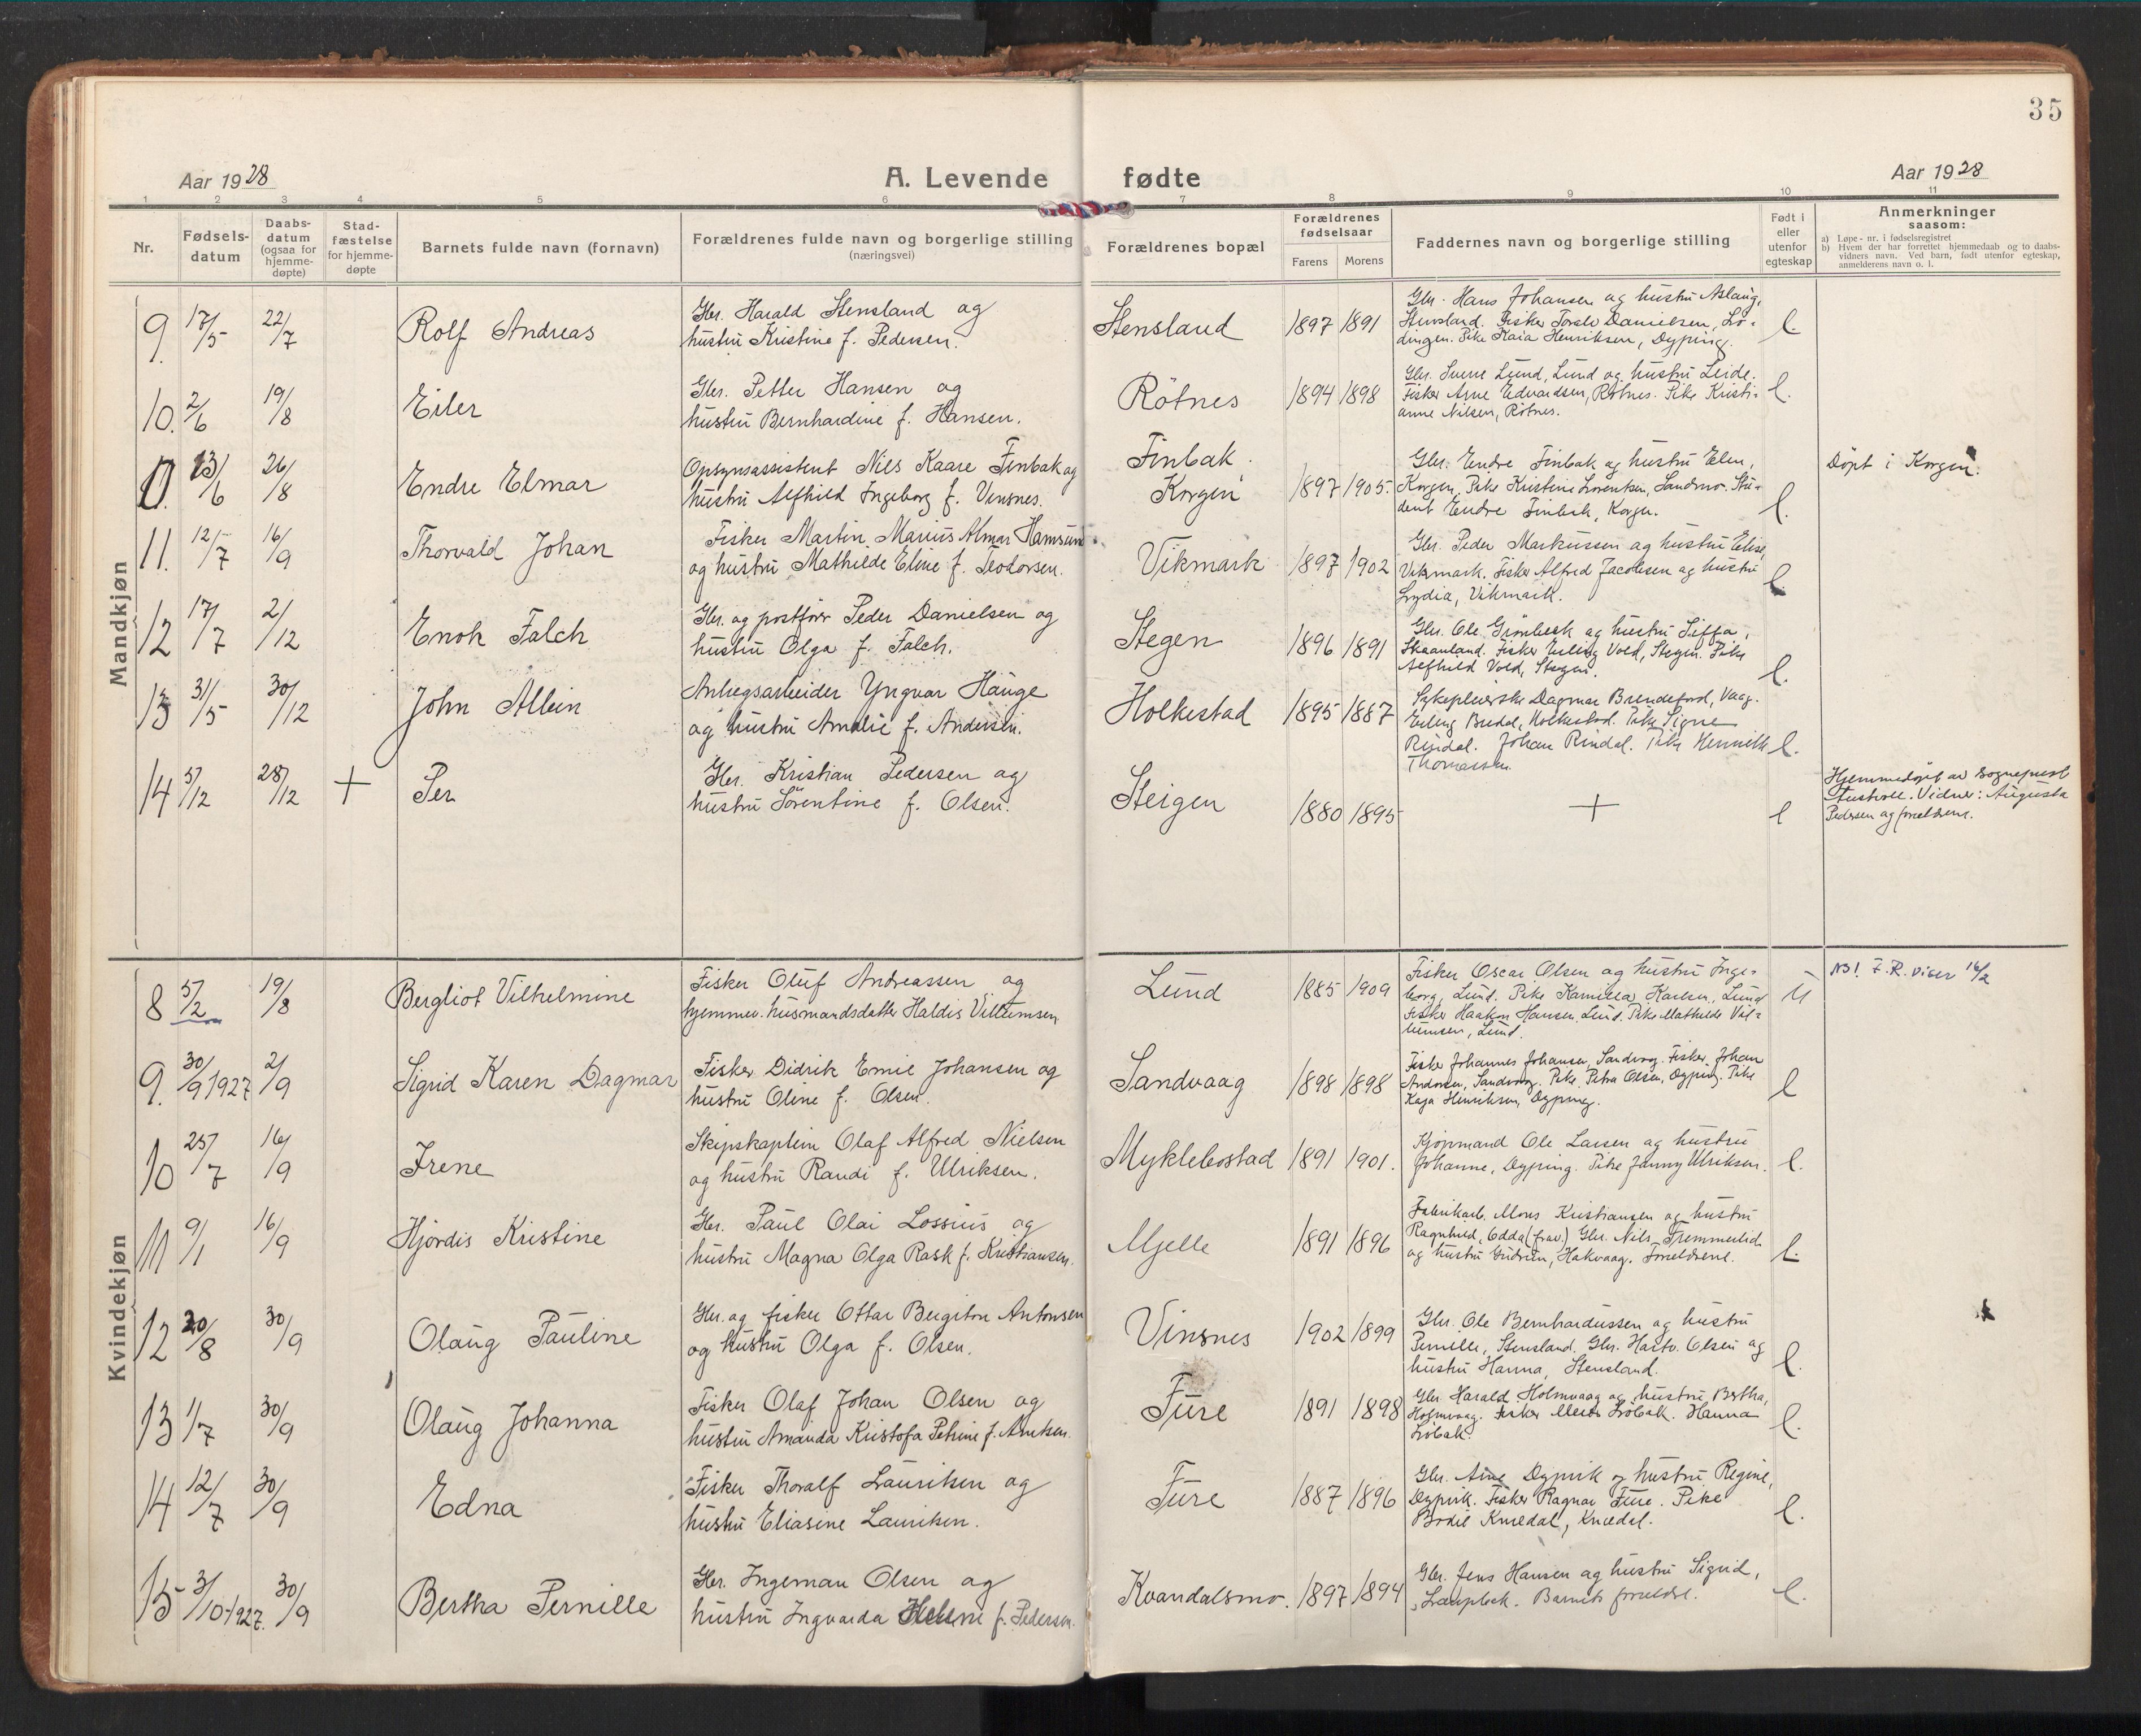 35
Aar 1928
A. Levende fødte
Aar 1928
1 2 3 4 5 6 7 8 9 10 11
Nr.
Fødsels-
datum
Daabs-
datum
(ogsaa for
hjemme-
døpte)
Stad-
fæstelse
for hjemme-
døpte
Barnets fulde navn (fornavn)
Forældrenes fulde navn og borgerlige stilling
(næringsvei)
Forældrenes bopæl
Forældrenes
fødselsaar
Farens Morens
Faddernes navn og borgerlige stilling
Født i
eller
utenfor
egteskap
Anmerkninger
saasom:
a) Løpe-nr. i fødselsregistret
b) Hvem der har forrettet hjemmedaab og to daabs-
vidners navn. Ved barn, født utenfor egteskap,
anmelderens navn o. l.
Mandkjøn
9. 17/5 22/7 Rolf Andreas
Gbr. Harald Stensland og
hustru Kristine f. Pedersen.
Stensland 1897 1891
Gbr. Hans Johansen og hustru Aslaug,
Stensland. Fisker Torolv Danielsen, Lö-
dingen. Pike Kaia Henriksen, Dyping.
l.
10. 2/6 19/8 Eiler
Gbr. Petter Hansen og
hustru Bernhardine f. Hansen.
Rötnes 1894 1898
Gbr. Sverre Lund, Lund og hustru Leide.
Fisker Arne Edvardsen, Rötnes. Pike Kristi-
anne Nilsen, Rötnes.
l.
0. 13/6 26/8 Endre Elmar
Opsynsassistent Nils Kaare Finbak og
hustru Alfhild Ingeborg f. Vinsnes.
Finbak.
Korgen 1897 1905.
Gbr. Endre Finbak og hustru Elen,
Korgen. Pike Kristine Lorentsen, Sandmo. Stu-
dent Endre Finbak, Korgen.
l.
Döpt i Korgen.
11. 12/7 16/9 Thorvald Johan
Fisker Martin Marius Almar Hamsund
og hustru Mathilde Eline f. Teodorsen.
Vikmark 1897 1902
Gbr. Peder Markussen og hustru Elise,
Vikmark. Fisker Alfred Jacobsen og hustru
Lydia, Vikmark.
l
12 17/7 2/12 Enok Falch
Gbr. og postförer Peder Danielsen og
hustru Olga f. Falch.
Stegen 1896 1891
Gbr. Ole Grönbeck og hustru Siffa,
Skaanland. Fisker Erling Vold, Stegen. Pike
Alfhild Vold, Stegen.
l.
13 31/5 30/12 John Albin
Anlegsarbeider Yngvar Hauge
og hustru Amalie f. Andersen.
Holkestad 1895 1887
Sykepleierske Dagmar Brendeford, Vaag.
Erling Bredal, Holkestad. Pike Signe
Rindal. Johan Rindal. Pike Henriette
Thomassen.
l.
14 5/12 28/12 + Per
Gbr. Kristian Pedersen og
hustru Sörentine f. Olsen.
Steigen 1880 1895
+
l
Hjemmedöpt av sogneprest
Vidner: Augusta
Pedersen og foreldrene.
Kvindekjøn
8 5/2 19/8 Bergliot Vilhelmine
Fisker Oluf Andreassen og
hjemmev. husmandsdatter Haldis Villumsen
Lund 1885 1909
Fisker Oscar Olsen og hustru Inge-
borg, Lund. Pike Kamilla Karlsen, Lund
Fisker Haakon Hansen, Lund. Pike Mathilde Vil-
lumsen, Lund.
U
NB! F.R. viser 16/2
9. 30/9 1927 2/9 Sigrid Karen Dagmar
Fisker Didrik Emil Johansen og
hustru Oline f. Olsen.
Sandvaag 1898 1898
Fisker Johannes Johansen, Sandvaag. Fisker Johan
Andersen, Sandvaag. Pike Petra Olsen, Dyping. Pike
Kaja Henriksen, Dyping.
l
10 25/7 16/9 Irene
Skipskaptein Olaf Alfred Nielsen
og hustru Randi f. Ulriksen.
Myklebostad 1891 1901.
Kjöpmand Ole Larsen og hustru
Johanne, Dyping. Pike Janny Ulriksen.
l.
11 9/1 16/9 Hjördis Kristine
Gbr. Paul Olai Lossius og
hustru Magna Olga Rask f. Kristiansen.
Mjelle 1891 1896
Fabrikarb. Mons Kristiansen og hustru
Ragnhild, Odda (frav.) Gbr. Nils Tremmerlid
og hustru Gudrun, Hakvaag. Forældrene.
l.
12 20/8 30/9 Olaug Pauline
Gbr. og fisker Ottar Bergiton Antonsen
og hustru Olga f. Olsen.
Vinsnes 1902 1899
Gbr. Ole Bernhardussen og hustru
Pernille, Stensland. Gbr. Hartv. Olsen og
hustru Hanna, Stensland.
l.
13 1/7 30/9 Olaug Johanna
Fisker Olaf Johan Olsen og
hustru Amanda Kristofa Petrine f. Arntsen.
Fure 1891 1898
Gbr. Harald Holmvaag og hustru Bertha,
Holmvaag. Fisker Löbak. Hanna
Löbak.
l.
14 12/7 30/9 Edna
Fisker Thoralf Lauritsen og
hustru Eliasine Lauritsen.
Fure 1887 1896
Gbr. Arne Dypvik og hustru Regine,
Dypvik. Fisker Ragnar Fure. Pike
Bodil Knædal, Knædal.
l.
15 3/10 1927. 30/9 Bertha Pernille
Gbr. Ingeman Olsen og
hustru Ingvarda Helene f. Pedersen.
Kvandalsmo. 1897 1894
Gbr. Jens Hansen og hustru Sigrid,
Barnets foreldre.
l.